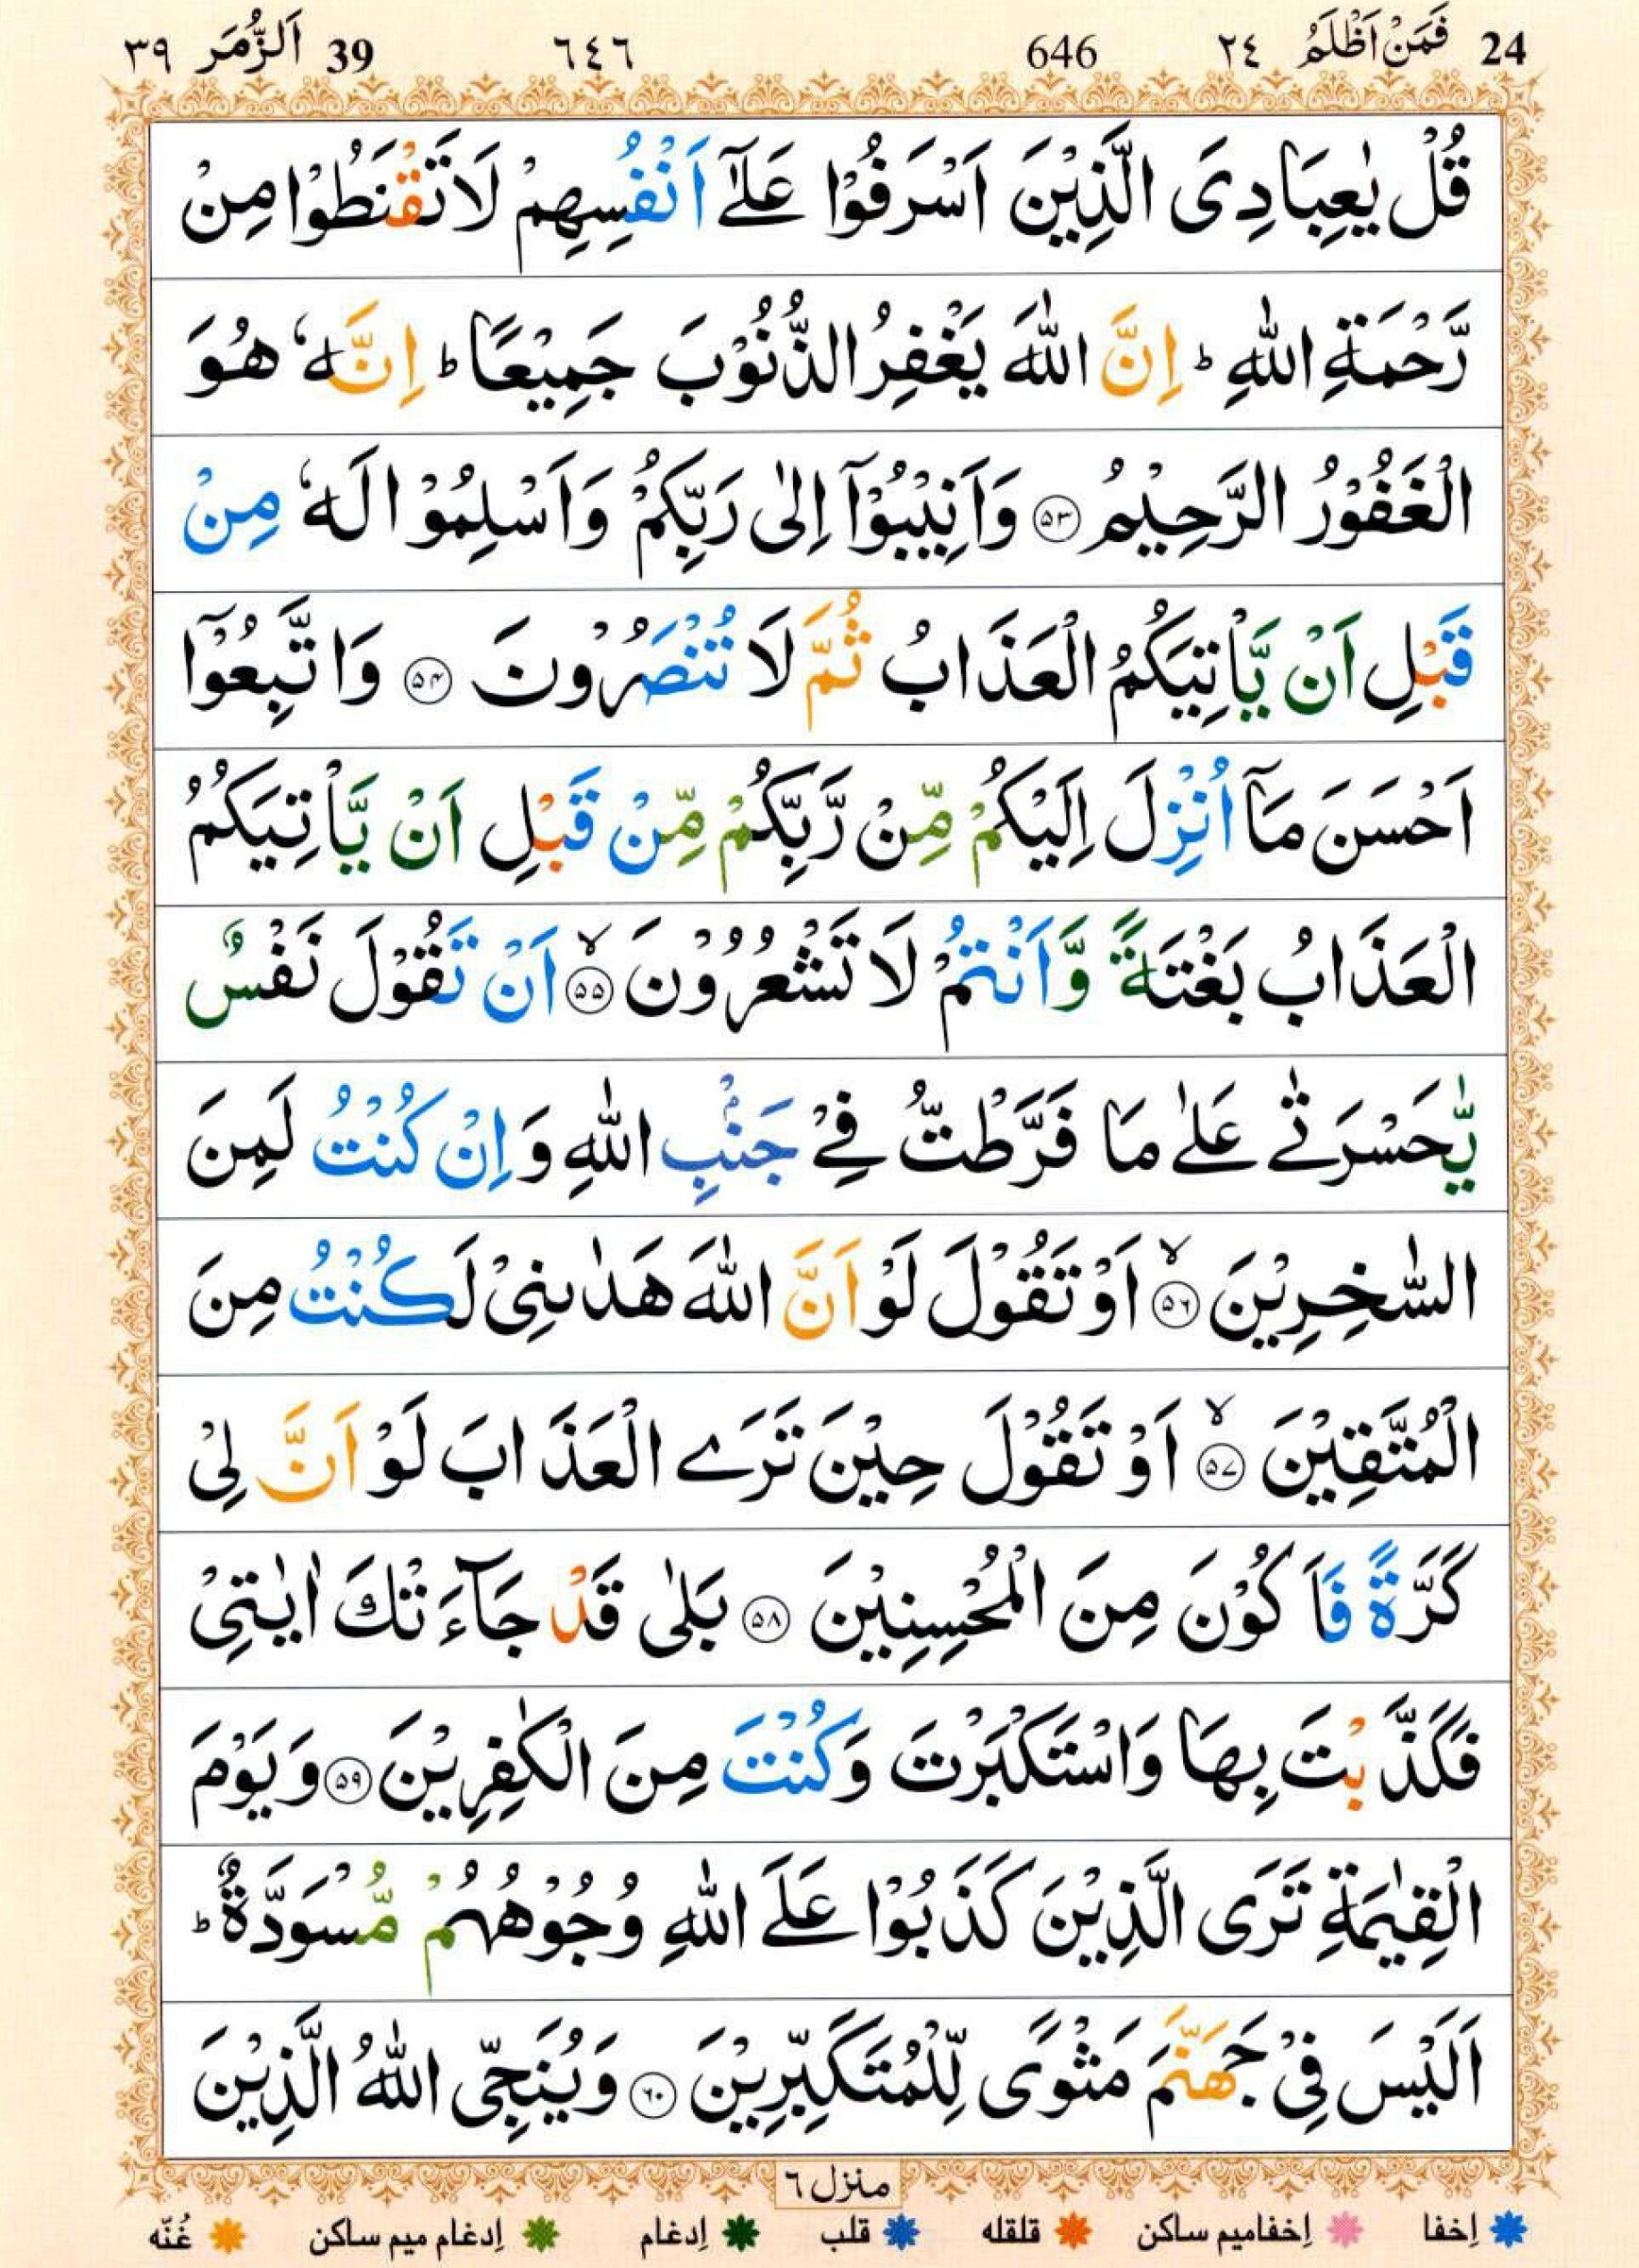 24 فَمَنْ اَظْلَمُ ٢٤ 646 ٦٤٦ 39 اَلزُّمَر ٣٩
قُلْ يٰعِبَادِىَ الَّذِيْنَ اَسْرَفُوْا عَلٰٓى اَنْفُسِهِمْ لَا تَقْنَطُوْا مِنْ
رَّحْمَةِ اللّٰهِ ؕ اِنَّ اللّٰهَ يَغْفِرُ الذُّنُوْبَ جَمِيْعًا ؕ اِنَّهٗ هُوَ
الْغَفُوْرُ الرَّحِيْمُ ﴿۵۳﴾ وَاَنِيْبُوْۤا اِلٰى رَبِّكُمْ وَاَسْلِمُوْا لَهٗ مِنْ
قَبْلِ اَنْ يَّاْتِيَكُمُ الْعَذَابُ ثُمَّ لَا تُنْصَرُوْنَ ﴿۵۴﴾ وَاتَّبِعُوْۤا
اَحْسَنَ مَاۤ اُنْزِلَ اِلَيْكُمْ مِّنْ رَّبِّكُمْ مِّنْ قَبْلِ اَنْ يَّاْتِيَكُمُ
الْعَذَابُ بَغْتَةً وَّاَنْتُمْ لَا تَشْعُرُوْنَ ۙ﴿۵۵﴾ اَنْ تَقُوْلَ نَفْسٌ
يّٰحَسْرَتٰى عَلٰى مَا فَرَّطْتُّ فِىْ جَنْۢبِ اللّٰهِ وَاِنْ كُنْتُ لَمِنَ
السّٰخِرِيْنَ ۙ﴿۵۶﴾ اَوْ تَقُوْلَ لَوْ اَنَّ اللّٰهَ هَدٰىنِىْ لَكُنْتُ مِنَ
الْمُتَّقِيْنَ ۙ﴿۵۷﴾ اَوْ تَقُوْلَ حِيْنَ تَرَى الْعَذَابَ لَوْ اَنَّ لِىْ
كَرَّةً فَاَكُوْنَ مِنَ الْمُحْسِنِيْنَ ﴿۵۸﴾ بَلٰى قَدْ جَآءَتْكَ اٰيٰتِىْ
فَكَذَّبْتَ بِهَا وَاسْتَكْبَرْتَ وَكُنْتَ مِنَ الْكٰفِرِيْنَ ﴿۵۹﴾ وَيَوْمَ
الْقِيٰمَةِ تَرَى الَّذِيْنَ كَذَبُوْا عَلَى اللّٰهِ وُجُوْهُهُمْ مُّسْوَدَّةٌ ؕ
اَلَيْسَ فِىْ جَهَنَّمَ مَثْوًى لِّلْمُتَكَبِّرِيْنَ ﴿۶۰﴾ وَيُنَجِّى اللّٰهُ الَّذِيْنَ
منزل ٦
اِخفا اِخفامیم ساکن قلقله قلب اِدغام اِدغام میم ساکن غُنّه